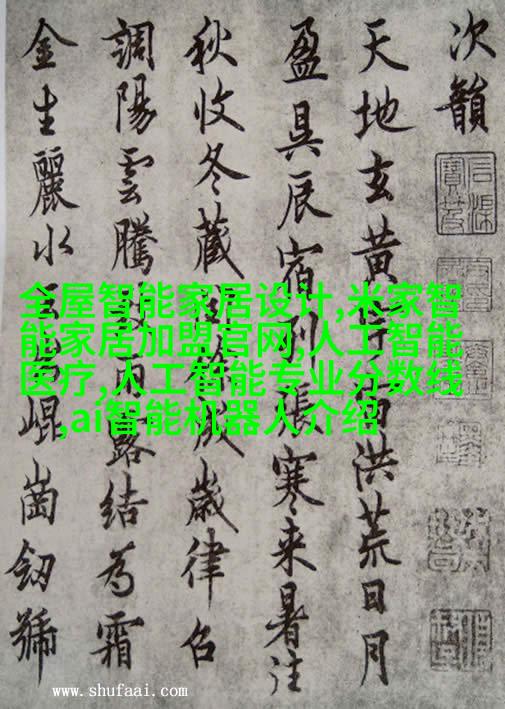 次韻
天地玄黃宇宙洪荒日月
盈昃辰宿列張寒来暑往
秋收冬蔵閏餘成歳律召
調陽雲騰致雨露結為霜
金生麗水玉出崐崗劒號
全屋智能家居设计,米家智
能家居加盟官网,人工智能
医疗,人工智能专业分数线
,ai智能机器人介绍
www.shufaai.com